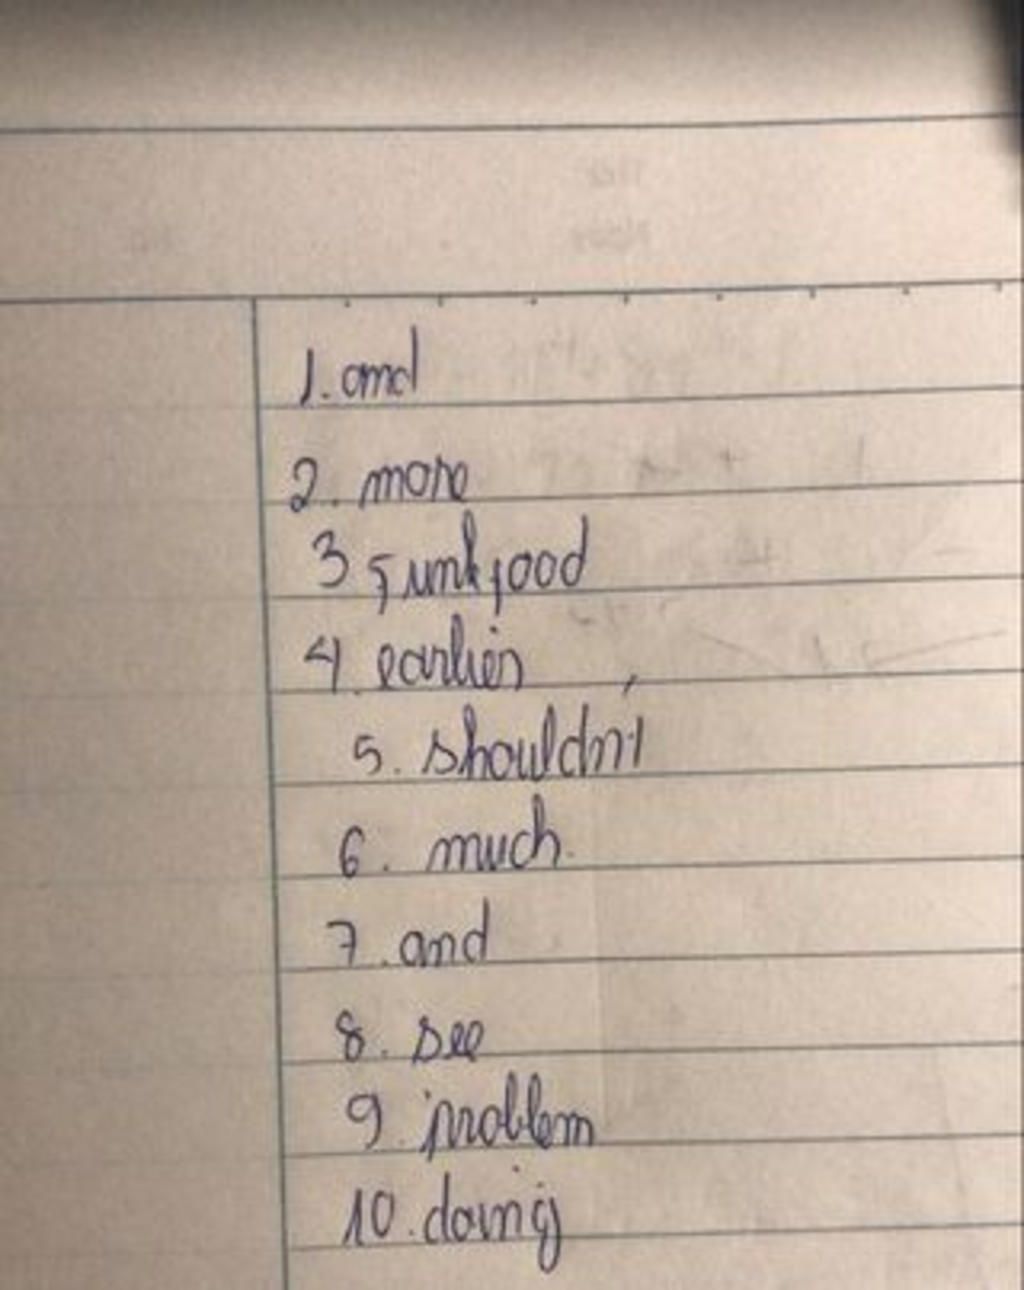 1. and
2. more
3 junkfood
4. earlier
5. shouldn't
6. much.
7. and
8. see
9. problem
10. doing